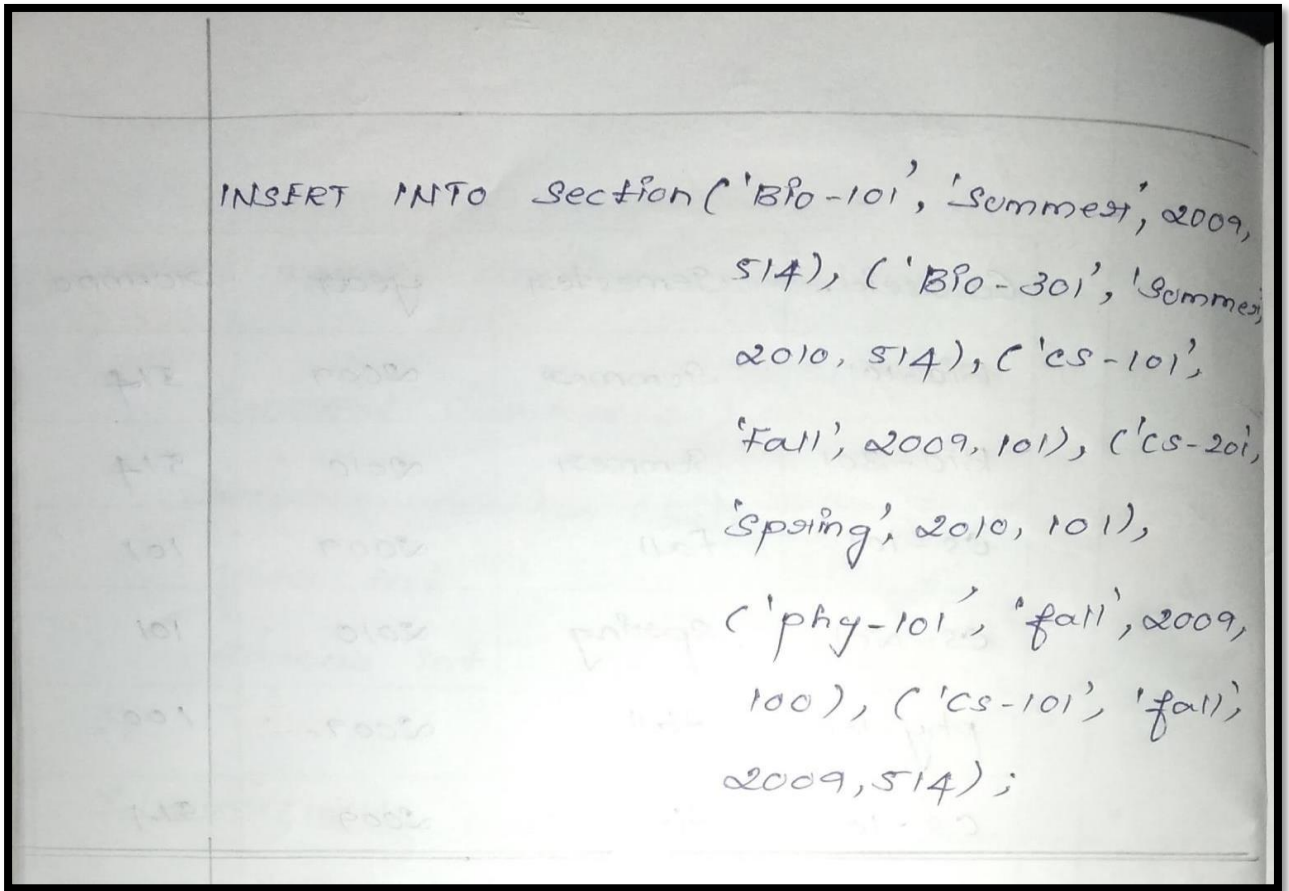 INSERT INTO Section ('Bio-101', 'Summer', 2009,
514), ('Bio-301', 'Summer,
2010, 514), ('CS-101',
'Fall', 2009, 101), ('CS-201',
'Spring', 2010, 101),
('phy-101', 'fall', 2009,
100), ('CS-101', 'fall',
2009, 514);